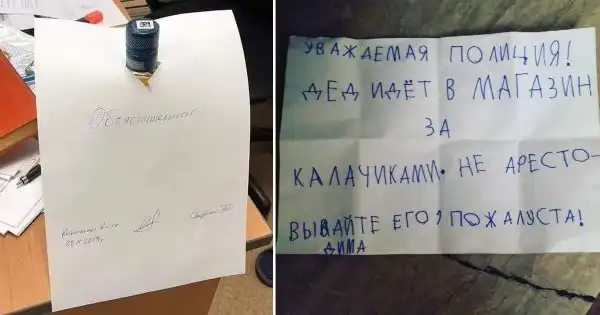 Объяснительная
28.11.2019г.
УВАЖАЕМАЯ ПОЛИЦИЯ!
ДЕД ИДЁТ В МАГАЗИН
ЗА
КАЛАЧИКАМИ. НЕ АРЕСТО-
ВЫВАЙТЕ ЕГО, ПОЖАЛУСТА!
ДИМА